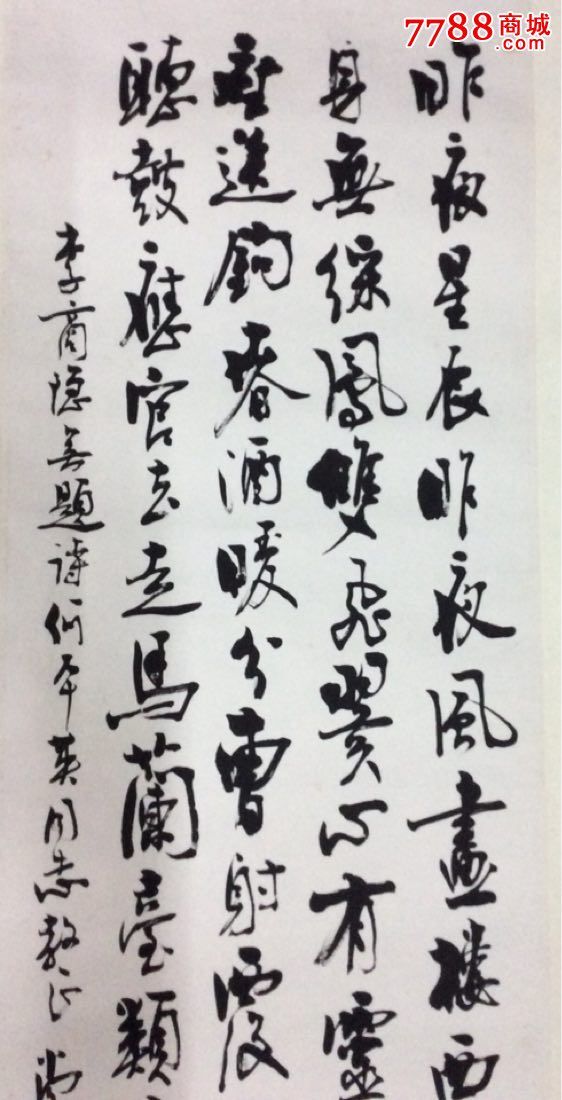 7788商城
.com
昨夜星辰昨夜風畫樓西
身無綵鳳雙飛翼心有靈
座送鉤春酒暖分曹射覆
聽鼓應官去走馬蘭臺類
李商隐無題詩何平英同志教正